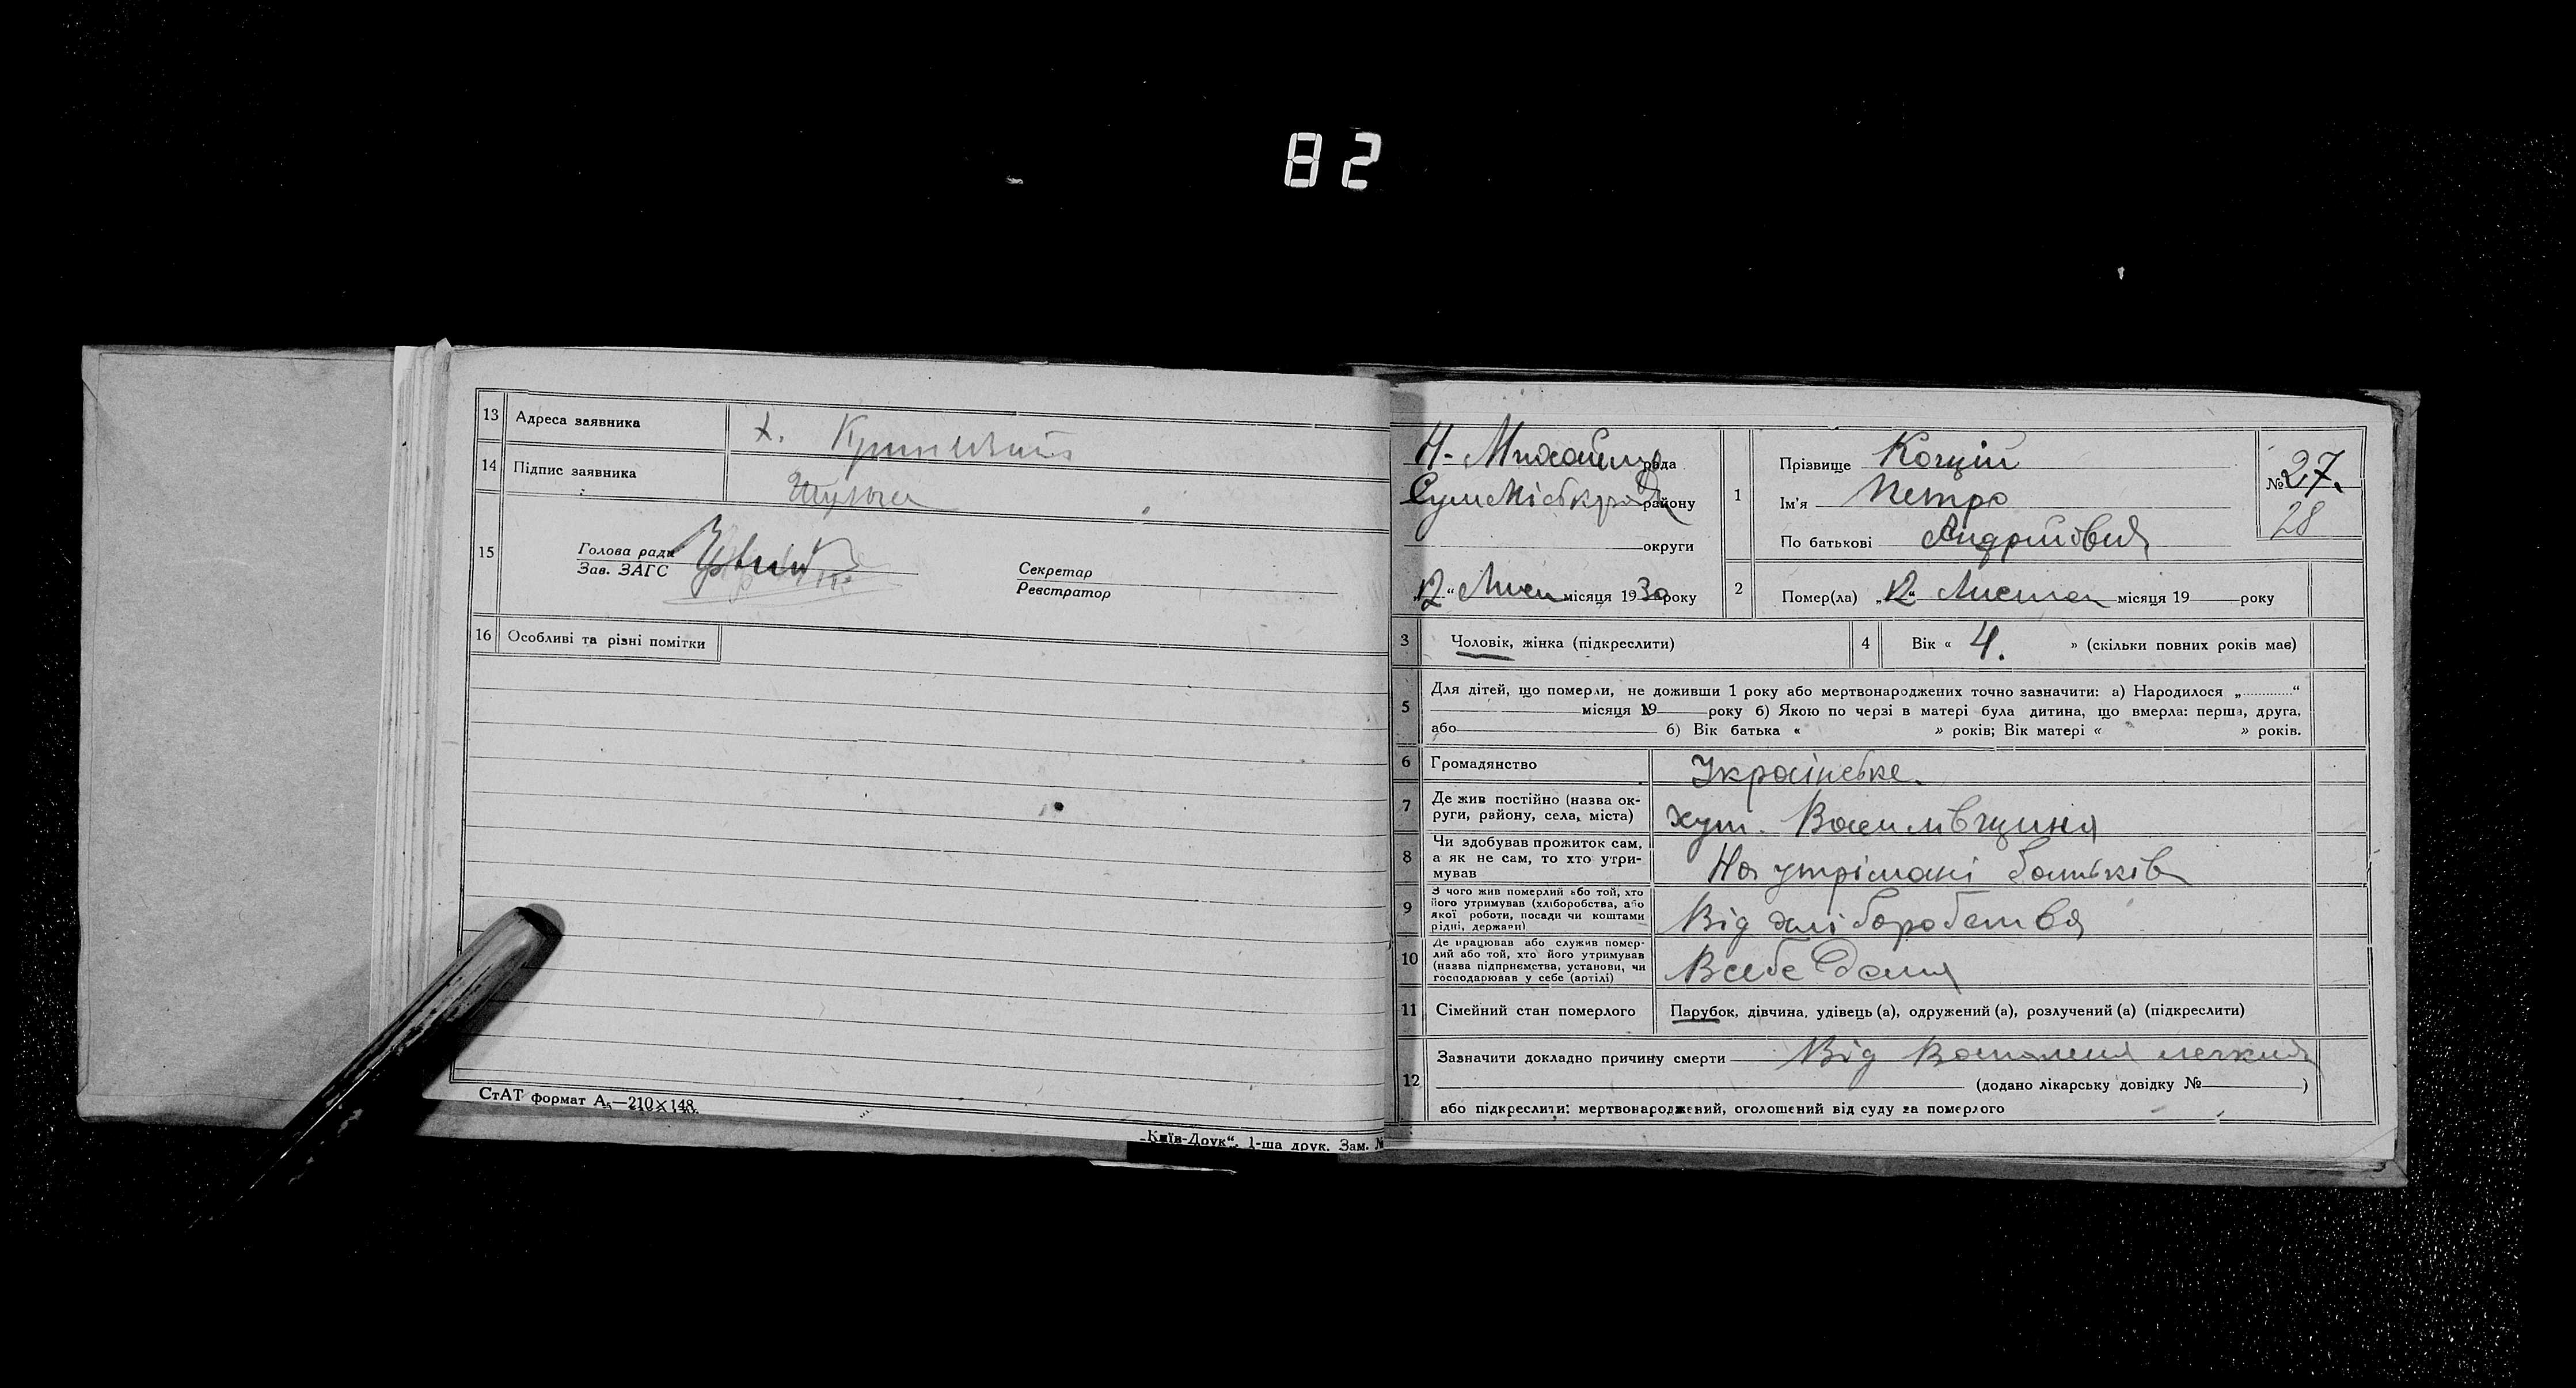 82
13 Адреса заявника х.
14 Підпис заявника
15 Голова ради
Зав. ЗАГС
Секретар
Реєстратор
16 Особливі та різні помітки
СтАТ формат А₅—210×148.
„Київ-Друк“. 1-ша друк. Зам. №
Н- рада
району
округи
„12“ місяця 1930 року
1 Прізвище Коцій
Ім'я Петро
По батькові Андрійович
№ 27.
28
2 Помер(ла) „12“ Листоп місяця 19 року
3 Чоловік, жінка (підкреслити)
4 Вік « 4. » (скільки повних років має)
5 Для дітей, що померли, не доживши 1 року або мертвонароджених точно зазначити: а) Народилося „ “
місяця 19 року б) Якою по черзі в матері була дитина, що вмерла: перша, друга,
або б) Вік батька « » років; Вік матері « » років.
6 Громадянство Українське
7 Де жив постійно (назва ок-
руги, району, села, міста) хут. Василівщина
8 Чи здобував прожиток сам,
а як не сам, то хто утри-
мував На утрімані батьків
9 З чого жив померлий або той, хто
його утримував (хліборобства, або
якої роботи, посади чи коштами
рідні, держави) Від хліборобства
10 Де працював або служив помер-
лий або той, хто його утримував
(назва підприємства, установи, чи
господарював у себе (артілі) Всебе дома
11 Сімейний стан померлого Парубок, дівчина, удівець (а), одружений (а), розлучений (а) (підкреслити)
12 Зазначити докладно причину смерти Від Воспаленя легких
(додано лікарську довідку № )
або підкреслити: мертвонароджений, оголошений від суду за померлого